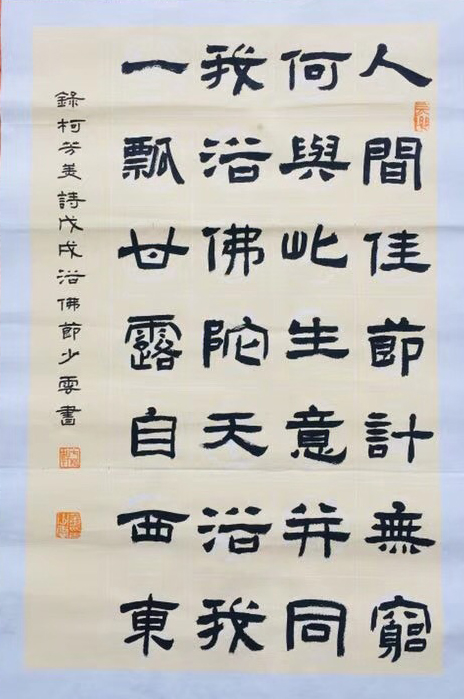 人間佳節計無窮
何與此生意并同
我浴佛陀天浴我
一瓢甘露自西東
錄柯芳美詩戊戌浴佛節少雲書